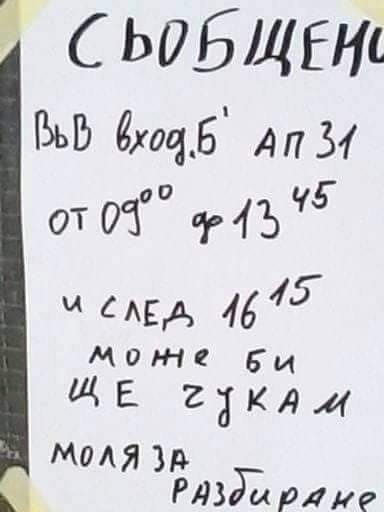 СЬОБЩЕНИ
ВЬВ вход.Б' АП 31
от 09⁰⁰ до 13⁴⁵
и СЛЕД 16¹⁵
може би
ЩЕ чукАМ
моля ЗА
РАЗбиране